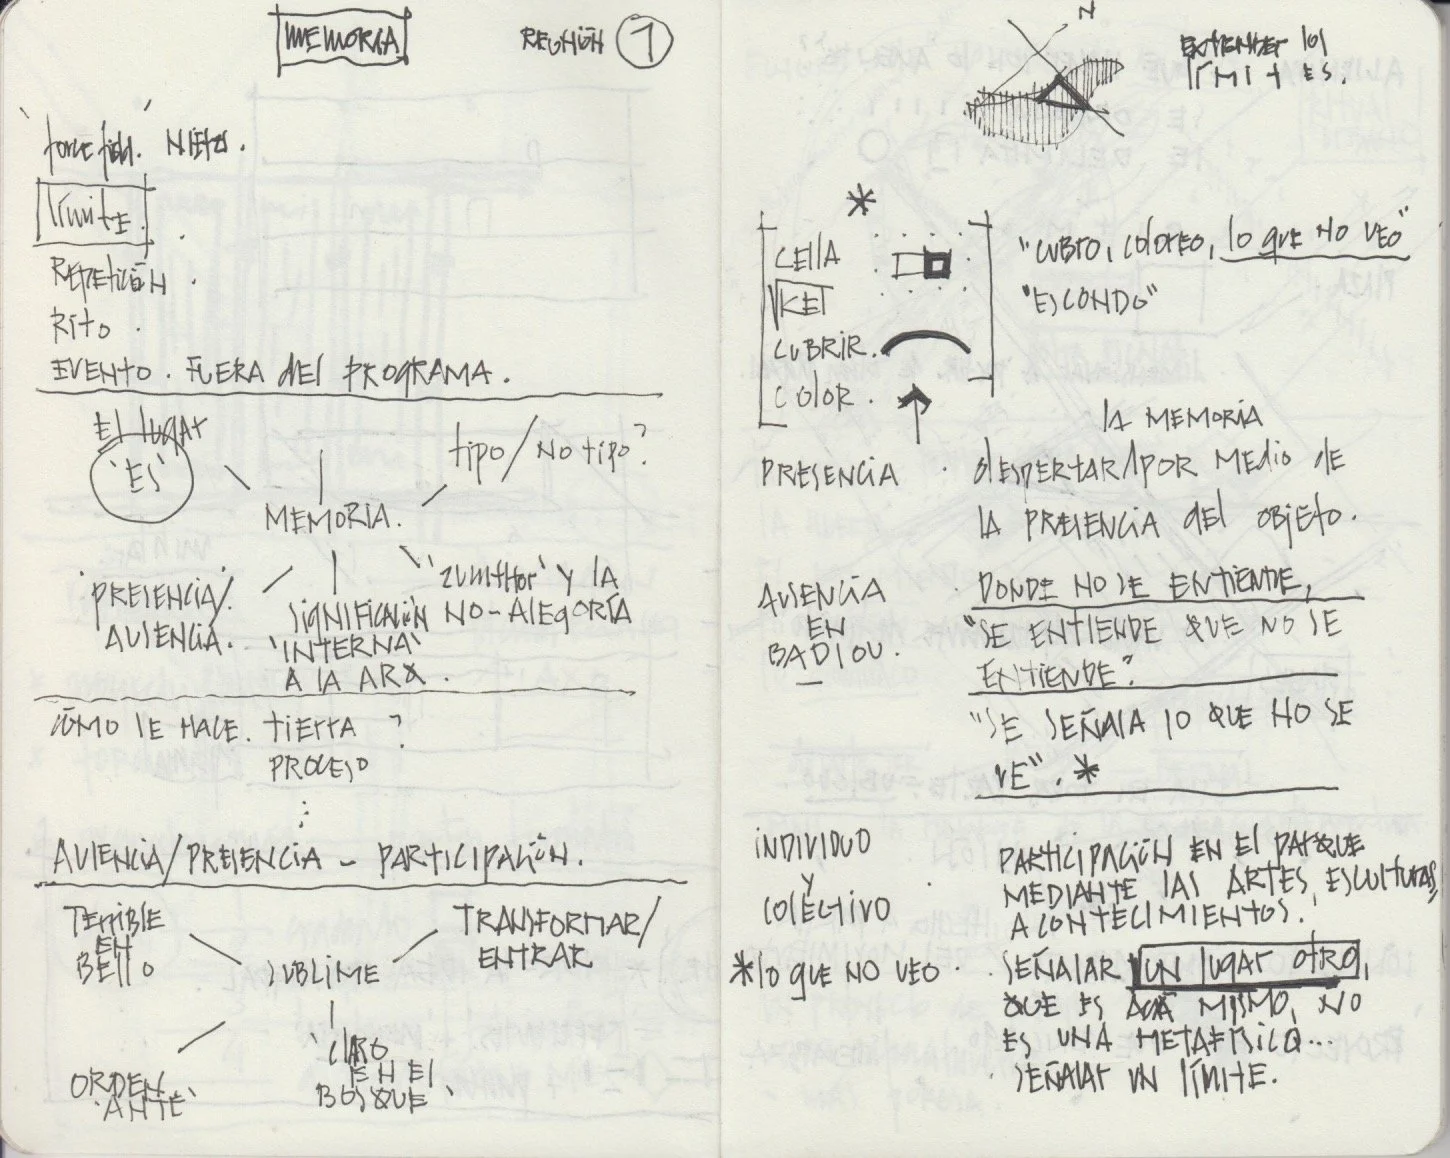 MEMORIA
REUNIÓN 1
"force field. NIETO.
límite.
REPETICIÓN.
RITO.
EVENTO. FUERA del PROGRAMA.
El lugar
'ES'
tipo/No tipo?
MEMORIA.
'PRESENCIA/
AUSENCIA.
SIGNIFICACIÓN
'INTERNA'
A LA ARQ.
'zumthor' y LA
NO-AlEGORÍA
CÓMO SE HACE. tIERRA ?
PROCESO
AUSENCIA/PRESENCIA - PARTICIPACIÓN.
TERRIBLE
EN
BEllO
SUBLIME
TRANSFORMAR/
ENTRAR.
ORDEN
'ANTE'
'CLARO
EN El
BOSQUE'
N
EXTENDER los
lÍMITES.
*
CEllA
CUBRIR.
COlOR.
"CUBRO, COLOREO, lo que NO VEO"
"ESCONDO"
PRESENCIA.
lA MEMORIA
despertar/POR MEDIO de
lA PRESENCIA del OBJETO.
AUSENCIA
EN
BADIOU.
DONDE NO SE ENTIENDE,
"SE ENTIENDE QUE NO SE
ENTIENDE?
"SE SEÑAlA lO QUE NO SE
VE". *
INDIVIDUO
Y
COlECTIVO
PARTICIPACIÓN EN El PARQUE
MEDIANTE lAS ARTES, ESCULTURAS,
ACONTECIMIENTOS.
*lo que NO VEO.
SEÑAlAR UN lugar otro,
QUE ES ACÁ MISMO, NO
ES UNA METAFÍSICA...
SEÑAlAR UN lÍMITE.